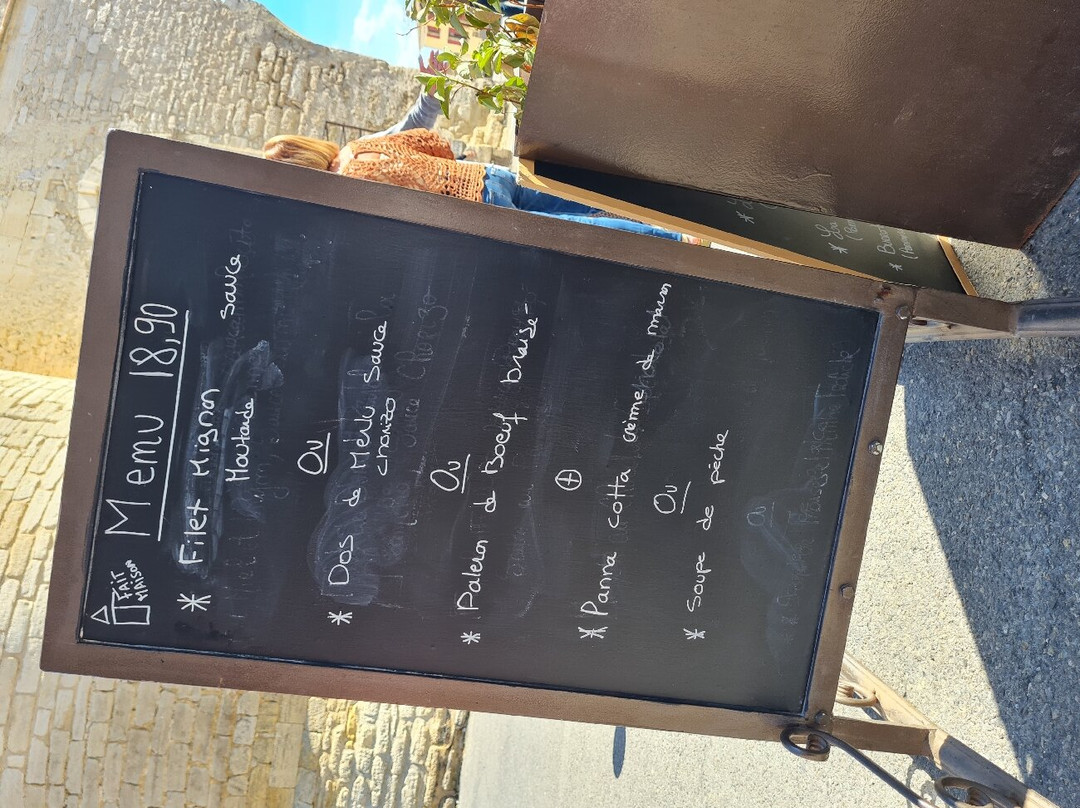 FAIT
MAISON
Menu 18,90
* Filet Mignon sauce
Moutarde
Ou
* Dos de Merlu sauce
chorizo
Ou
* Paleron de Boeuf braisé-
+
* Panna cotta crème de marron
Ou
* Soupe de pêche